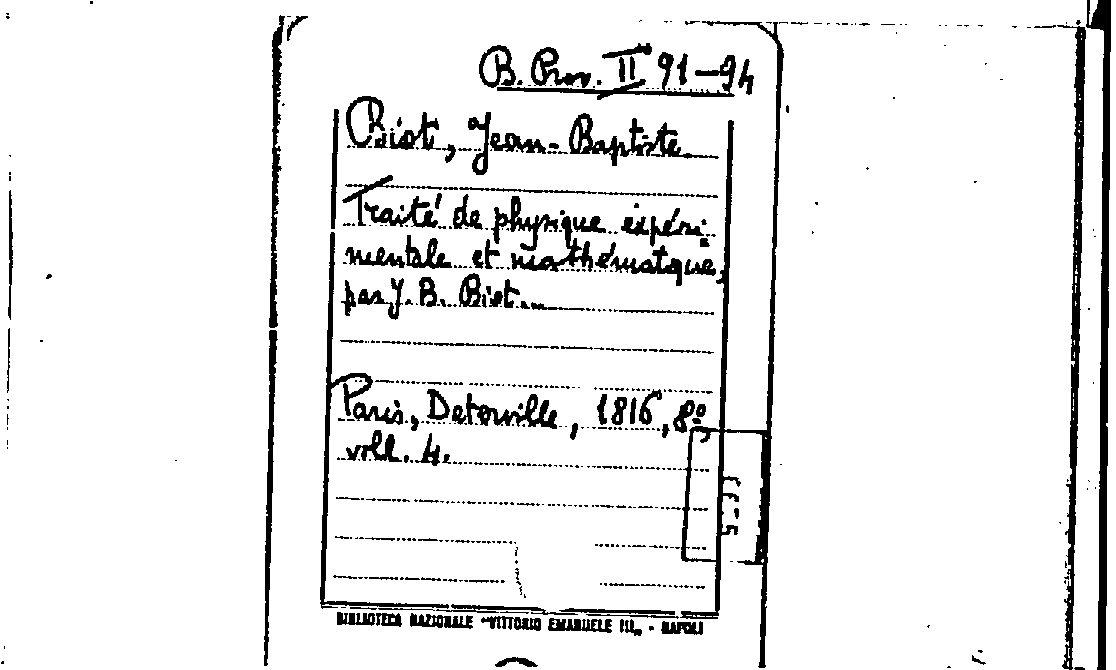 B. Prov. II 91-94
Biot, Jean-Baptiste
Traité de physique expéri-
mentale et mathématique,
par J. B. Biot...
Paris, Deterville, 1816, 8º,
voll. 4.
BIBLIOTECA NAZIONALE "VITTORIO EMANUELE III„ - NAPOLI